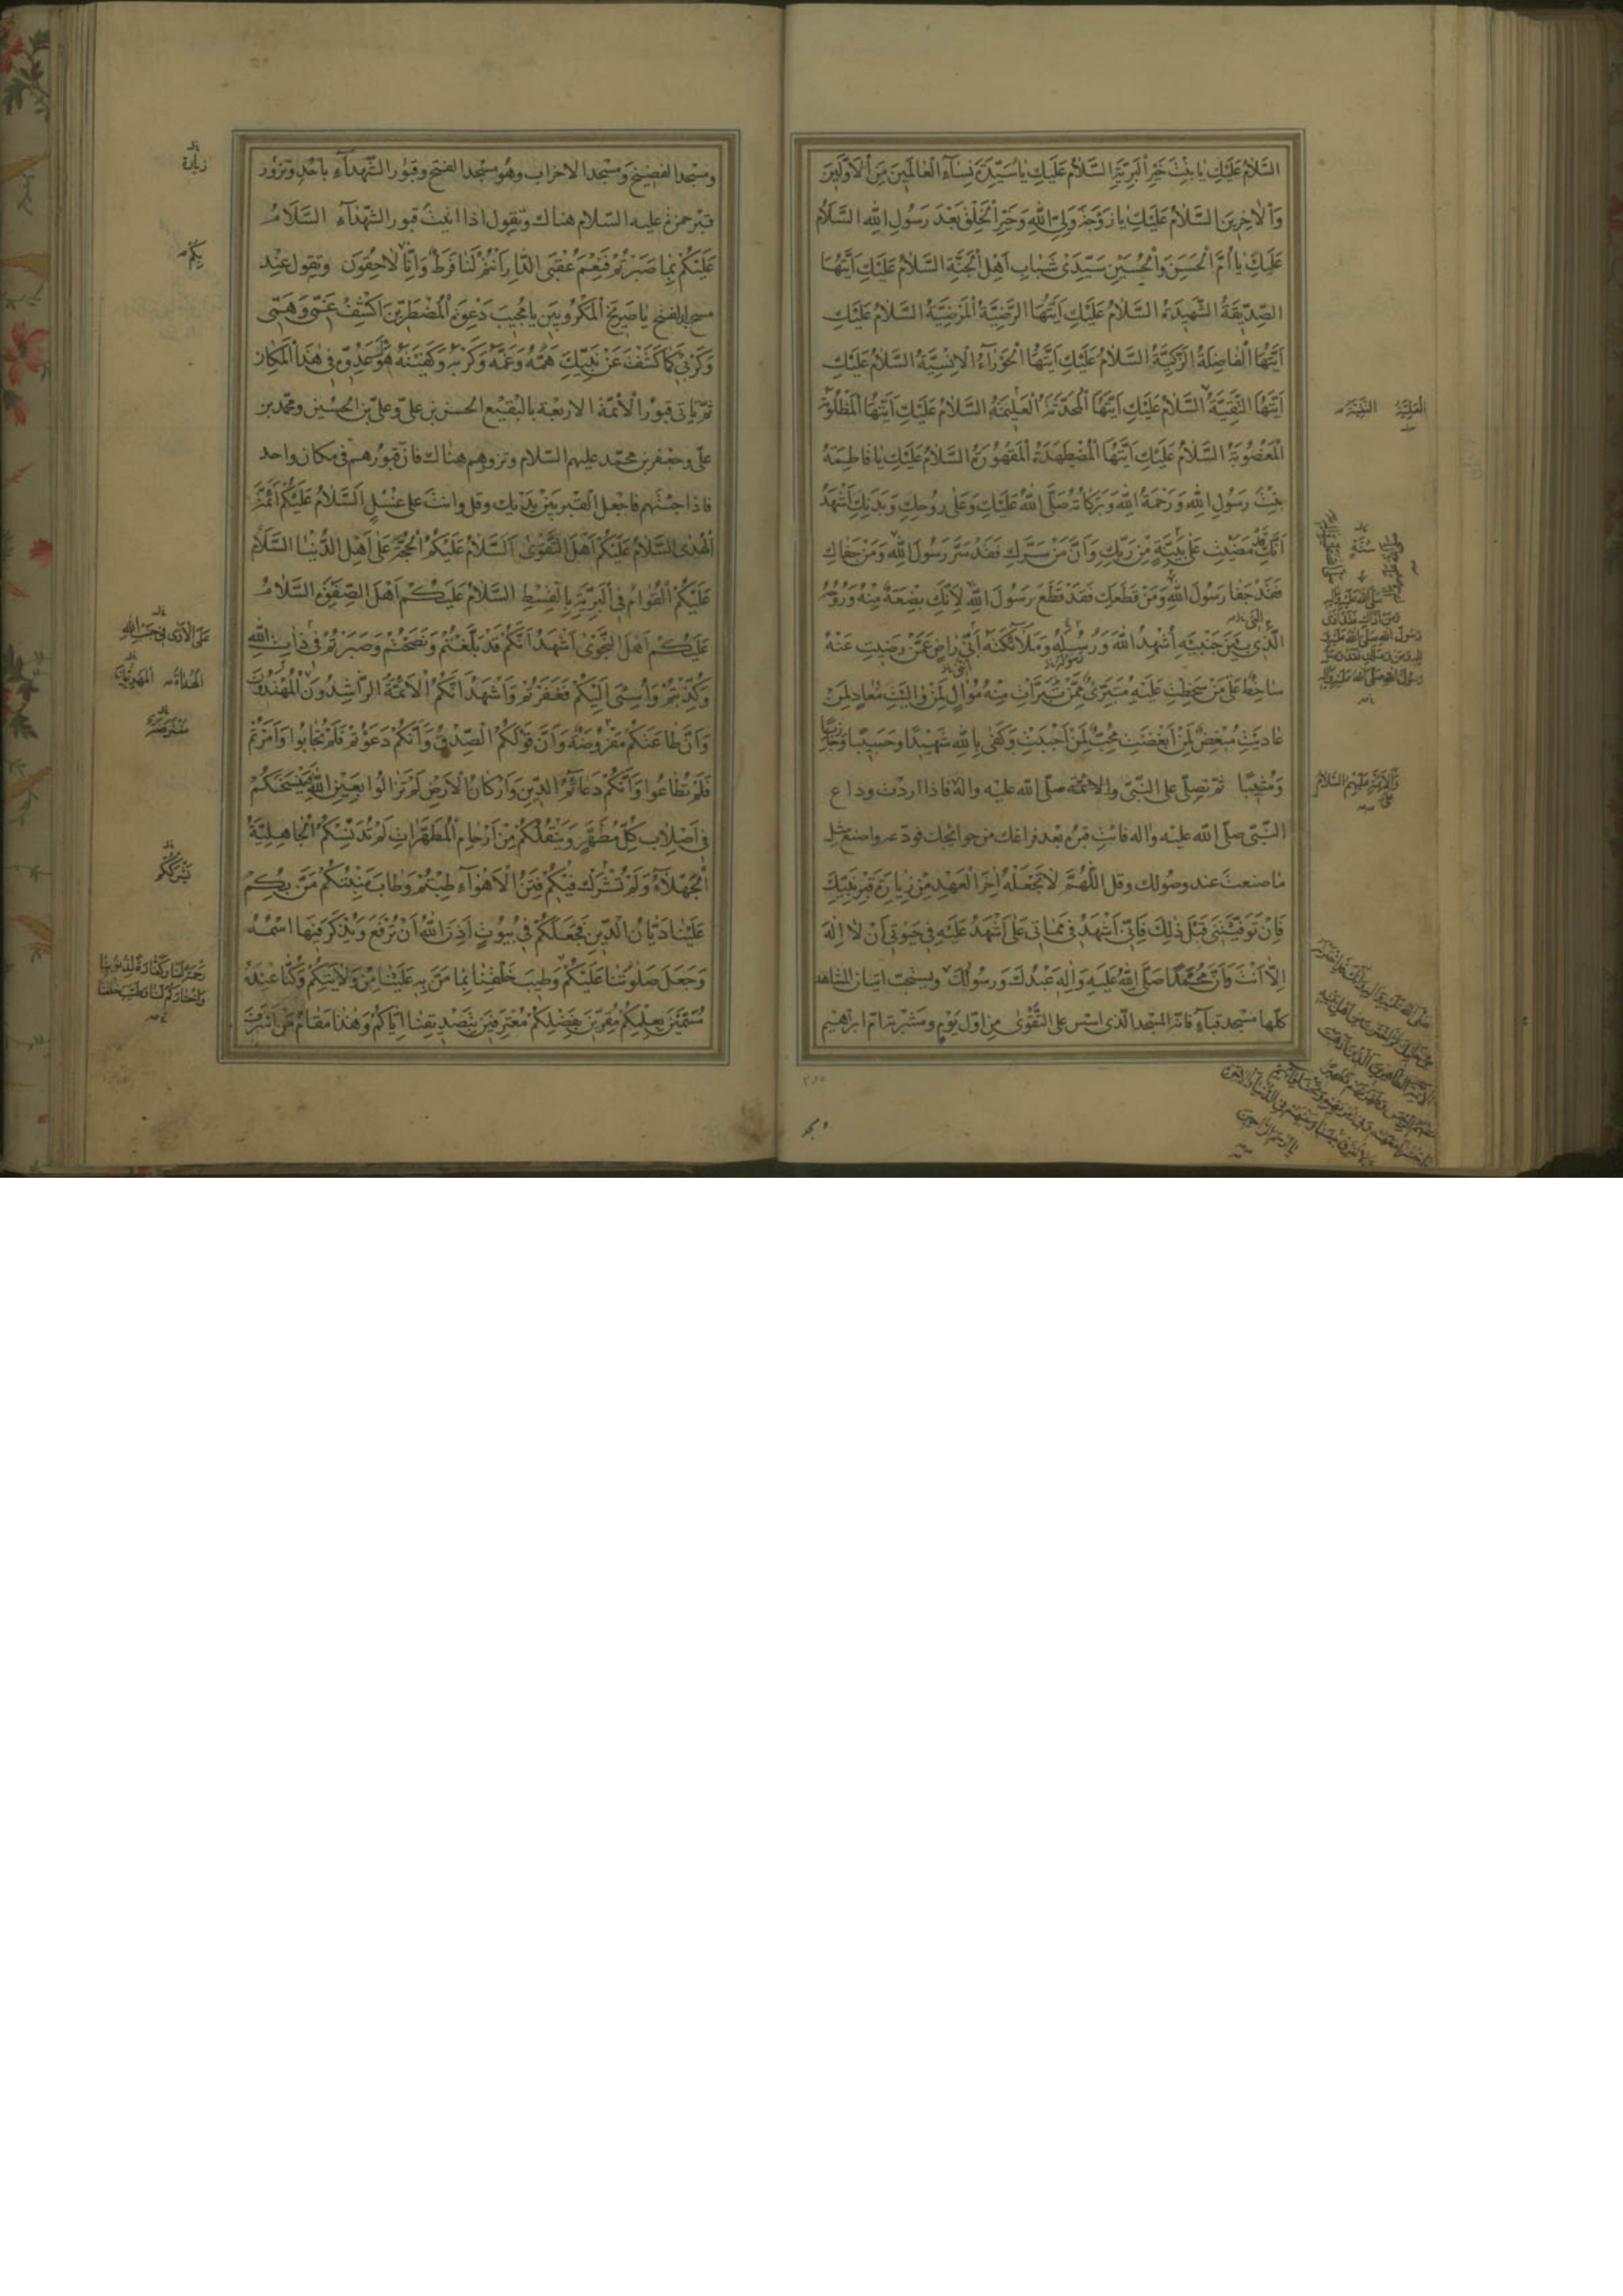 السَّلامُ عَلَيْكِ يا بِنْتَ خَيْرِ الْبَرِيَّةِ السَّلامُ عَلَيْكِ يا سَيِّدَةَ نِساءِ الْعالَمينَ مِنَ الْاَوَّلينَ
وَالْاخِرينَ السَّلامُ عَلَيْكِ يا زَوْجَةَ وَلِيِّ اللهِ وَخَيْرِ الْخَلْقِ بَعْدَ رَسُولِ اللهِ السَّلامُ
عَلَيْكِ يا اُمَّ الْحَسَنِ وَالْحُسَيْنِ سَيِّدَيْ شَبابِ اَهْلِ الْجَنَّةِ السَّلامُ عَلَيْكِ اَيَّتُهَا
الصِّدّيقَةُ الشَّهيدَةُ السَّلامُ عَلَيْكِ اَيَّتُهَا الرَّضِيَّةُ الْمَرْضِيَّةُ السَّلامُ عَلَيْكِ
اَيَّتُهَا الْفاضِلَةُ الزَّكِيَّةُ السَّلامُ عَلَيْكِ اَيَّتُهَا الْحَوْرآءُ الْاِنْسِيَّةُ السَّلامُ عَلَيْكِ
اَيَّتُهَا التَّقِيَّةُ السَّلامُ عَلَيْكِ اَيَّتُهَا الْمُحَدَّثَةُ الْعَليمَةُ السَّلامُ عَلَيْكِ اَيَّتُهَا الْمَظْلُومَةُ
الْمَغْصُوبَةُ السَّلامُ عَلَيْكِ اَيَّتُهَا الْمُضْطَهَدَةُ الْمَقْهُورَةُ السَّلامُ عَلَيْكِ يا فاطِمَةُ
بِنْتَ رَسُولِ اللهِ وَرَحْمَةُ اللهِ وَبَرَكاتُهُ صَلَّى اللهُ عَلَيْكِ وَعَلى رُوحِكِ وَبَدَنِكِ اَشْهَدُ
اَنَّكِ قَدْ مَضَيْتِ عَلى بَيِّنَةٍ مِنْ رَبِّكِ وَاَنَّ مَنْ سَرَّكِ فَقَدْ سَرَّ رَسُولَ اللهِ وَمَنْ جَفاكِ
فَقَدْ جَفا رَسُولَ اللهِ وَمَنْ قَطَعَكِ فَقَدْ قَطَعَ رَسُولَ اللهِ لِاَنَّكِ بِضْعَةٌ مِنْهُ وَرُوحُهُ
الَّذي بَيْنَ جَنْبَيْهِ اُشْهِدُ اللهَ وَرُسُلَهُ وَمَلائِكَتَهُ اَنّي راضٍ عَمَّنْ رَضيتِ عَنْهُ
ساخِطٌ عَلى مَنْ سَخِطْتِ عَلَيْهِ مُتَبَرِّئٌ مِمَّنْ تَبَرَّأْتِ مِنْهُ مُوالٍ لِمَنْ والَيْتِ مُعادٍ لِمَنْ
عادَيْتِ مُبْغِضٌ لِمَنْ اَبْغَضْتِ مُحِبٌّ لِمَنْ اَحْبَبْتِ وَكَفى بِاللهِ شَهيدًا وَحَسيبًا وَجازِيًا
وَمُثيبًا ثم تصلّى على النبىّ والائمة صلّى الله عليه واله فاذا اردت وداع
النّبىّ صلّى الله عليه واله فائت قبره بعد فراغك من حوائجك فودّعه واصنع مثل
ما صنعت عند وصولك وقل اَللّهُمَّ لا تَجْعَلْهُ اخِرَ الْعَهْدِ مِنْ زِيارَةِ قَبْرِ نَبِيِّكَ
فَاِنْ تَوَفَّيْتَني قَبْلَ ذلِكَ فَاِنّي اَشْهَدُ في مَماتي عَلى اَشْهَدُ عَلَيْهِ في حَيوتي اَنْ لا اِلهَ
اِلّا اَنْتَ وَاَنَّ مُحَمَّدًا صَلَّى اللهُ عَلَيْهِ وَالِهِ عَبْدُكَ وَرَسُولُكَ ويستحبّ اتيان المشاهد
كلّها مسجد قبآء فانّه المسجد الّذى اسّس على التَّقْوى مِنْ اوّل يَوْمٍ ومشربة امّ ابرهيم
الْعَليَّةُ النَّقِيَّةُ
وَالْاَئِمَّةِ عَلَيْهِمُ السَّلامُ
ومسجد الفضيخ ومسجد الاحزاب وهو مسجد الفتح وقبور الشّهدآء بأحد وتزور
قبر حمزة عليه السّلام هناك وتقول اذا اتيت قبور الشّهدآء السَّلامُ
عَلَيْكُمْ بِما صَبَرْتُمْ فَنِعْمَ عُقْبَى الدّارِ اَنْتُمْ لَنا فَرَطٌ وَاِنّا لاحِقُونَ وتقول عند
مسجد الفتح يا صَريخَ الْمَكْرُوبينَ يا مُجيبَ دَعْوَةِ الْمُضْطَرّينَ اكْشِفْ غَمّي وَهَمّي
وَكَرْبي كَما كَشَفْتَ عَنْ نَبِيِّكَ هَمَّهُ وَغَمَّهُ وَكَرْبَهُ وَكَفَيْتَهُ هَوْلَ عَدُوِّهِ في هذَا الْمَكانِ
ثمّ يأتى قبور الأئمّة الاربعة بالبقيع الحسن بن علىّ وعلىّ بن الحسين ومحمّد بن
علىّ وجعفر بن محمّد عليهم السّلام وتزورهم هناك فانّ قبورهم فى مكان واحد
فاذا جئتهم فاجعل القبر بين يديك وقل وانت على غسل اَلسَّلامُ عَلَيْكُمْ اَئِمَّةَ
الْهُدى السَّلامُ عَلَيْكُمْ اَهْلَ التَّقْوى اَلسَّلامُ عَلَيْكُمْ الْحُجَّةَ عَلى اَهْلِ الدُّنْيا السَّلامُ
عَلَيْكُمْ الْقُوّامُ فِي الْبَرِيَّةِ بِالْقِسْطِ السَّلامُ عَلَيْكُمْ اَهْلَ الصَّفْوَةِ السَّلامُ
عَلَيْكُمْ اَهْلَ النَّجْوى اَشْهَدُ اَنَّكُمْ قَدْ بَلَّغْتُمْ وَنَصَحْتُمْ وَصَبَرْتُمْ في ذاتِ اللهِ
وَكُذِّبْتُمْ وَاُسيئَ اِلَيْكُمْ فَغَفَرْتُمْ وَاَشْهَدُ اَنَّكُمُ الْاَئِمَّةُ الرّاشِدُونَ الْمُهْتَدُونَ
وَاَنَّ طاعَتَكُمْ مَفْرُوضَةٌ وَاَنَّ قَوْلَكُمُ الصِّدْقُ وَاَنَّكُمْ دَعَوْتُمْ فَلَمْ تُجابُوا وَاَمَرْتُمْ
فَلَمْ تُطاعُوا وَاَنَّكُمْ دَعائِمُ الدّينِ وَاَرْكانُ الْاَرْضِ لَمْ تَزالُوا بِعَيْنِ اللهِ يَنْسَخُكُمْ
في اَصْلابِ كُلِّ مُطَهَّرٍ وَيَنْقُلُكُمْ مِنْ اَرْحامِ الْمُطَهَّراتِ لَمْ تُدَنِّسْكُمُ الْجاهِلِيَّةُ
الْجَهْلآءُ وَلَمْ تَشْرَكْ فيكُمْ فِتَنُ الْاَهْوآءِ طِبْتُمْ وَطابَ مَنْبِتُكُمْ مَنَّ بِكُمْ
عَلَيْنا دَيّانُ الدّينِ فَجَعَلَكُمْ في بُيُوتٍ اَذِنَ اللهُ اَنْ تُرْفَعَ وَيُذْكَرَ فيهَا اسْمُهُ
وَجَعَلَ صَلَوتَنا عَلَيْكُمْ وَطيبَ خَلْقِنا بِما مَنَّ بِهِ عَلَيْنا مِنْ وَلايَتِكُمْ وَكُنّا عِنْدَهُ
مُسَمَّيْنَ بِعِلْمِكُمْ مُقِرّينَ بِفَضْلِكُمْ مُعْتَرِفينَ بِتَصْديقِنا اِيّاكُمْ وَهذا مَقامُ مَنْ اَسْرَفَ
زيارة
بِكُمْ
عَلَى الْاَذى في جَنْبِ اللهِ
الْهُداةُ الْمَهْدِيُّونَ